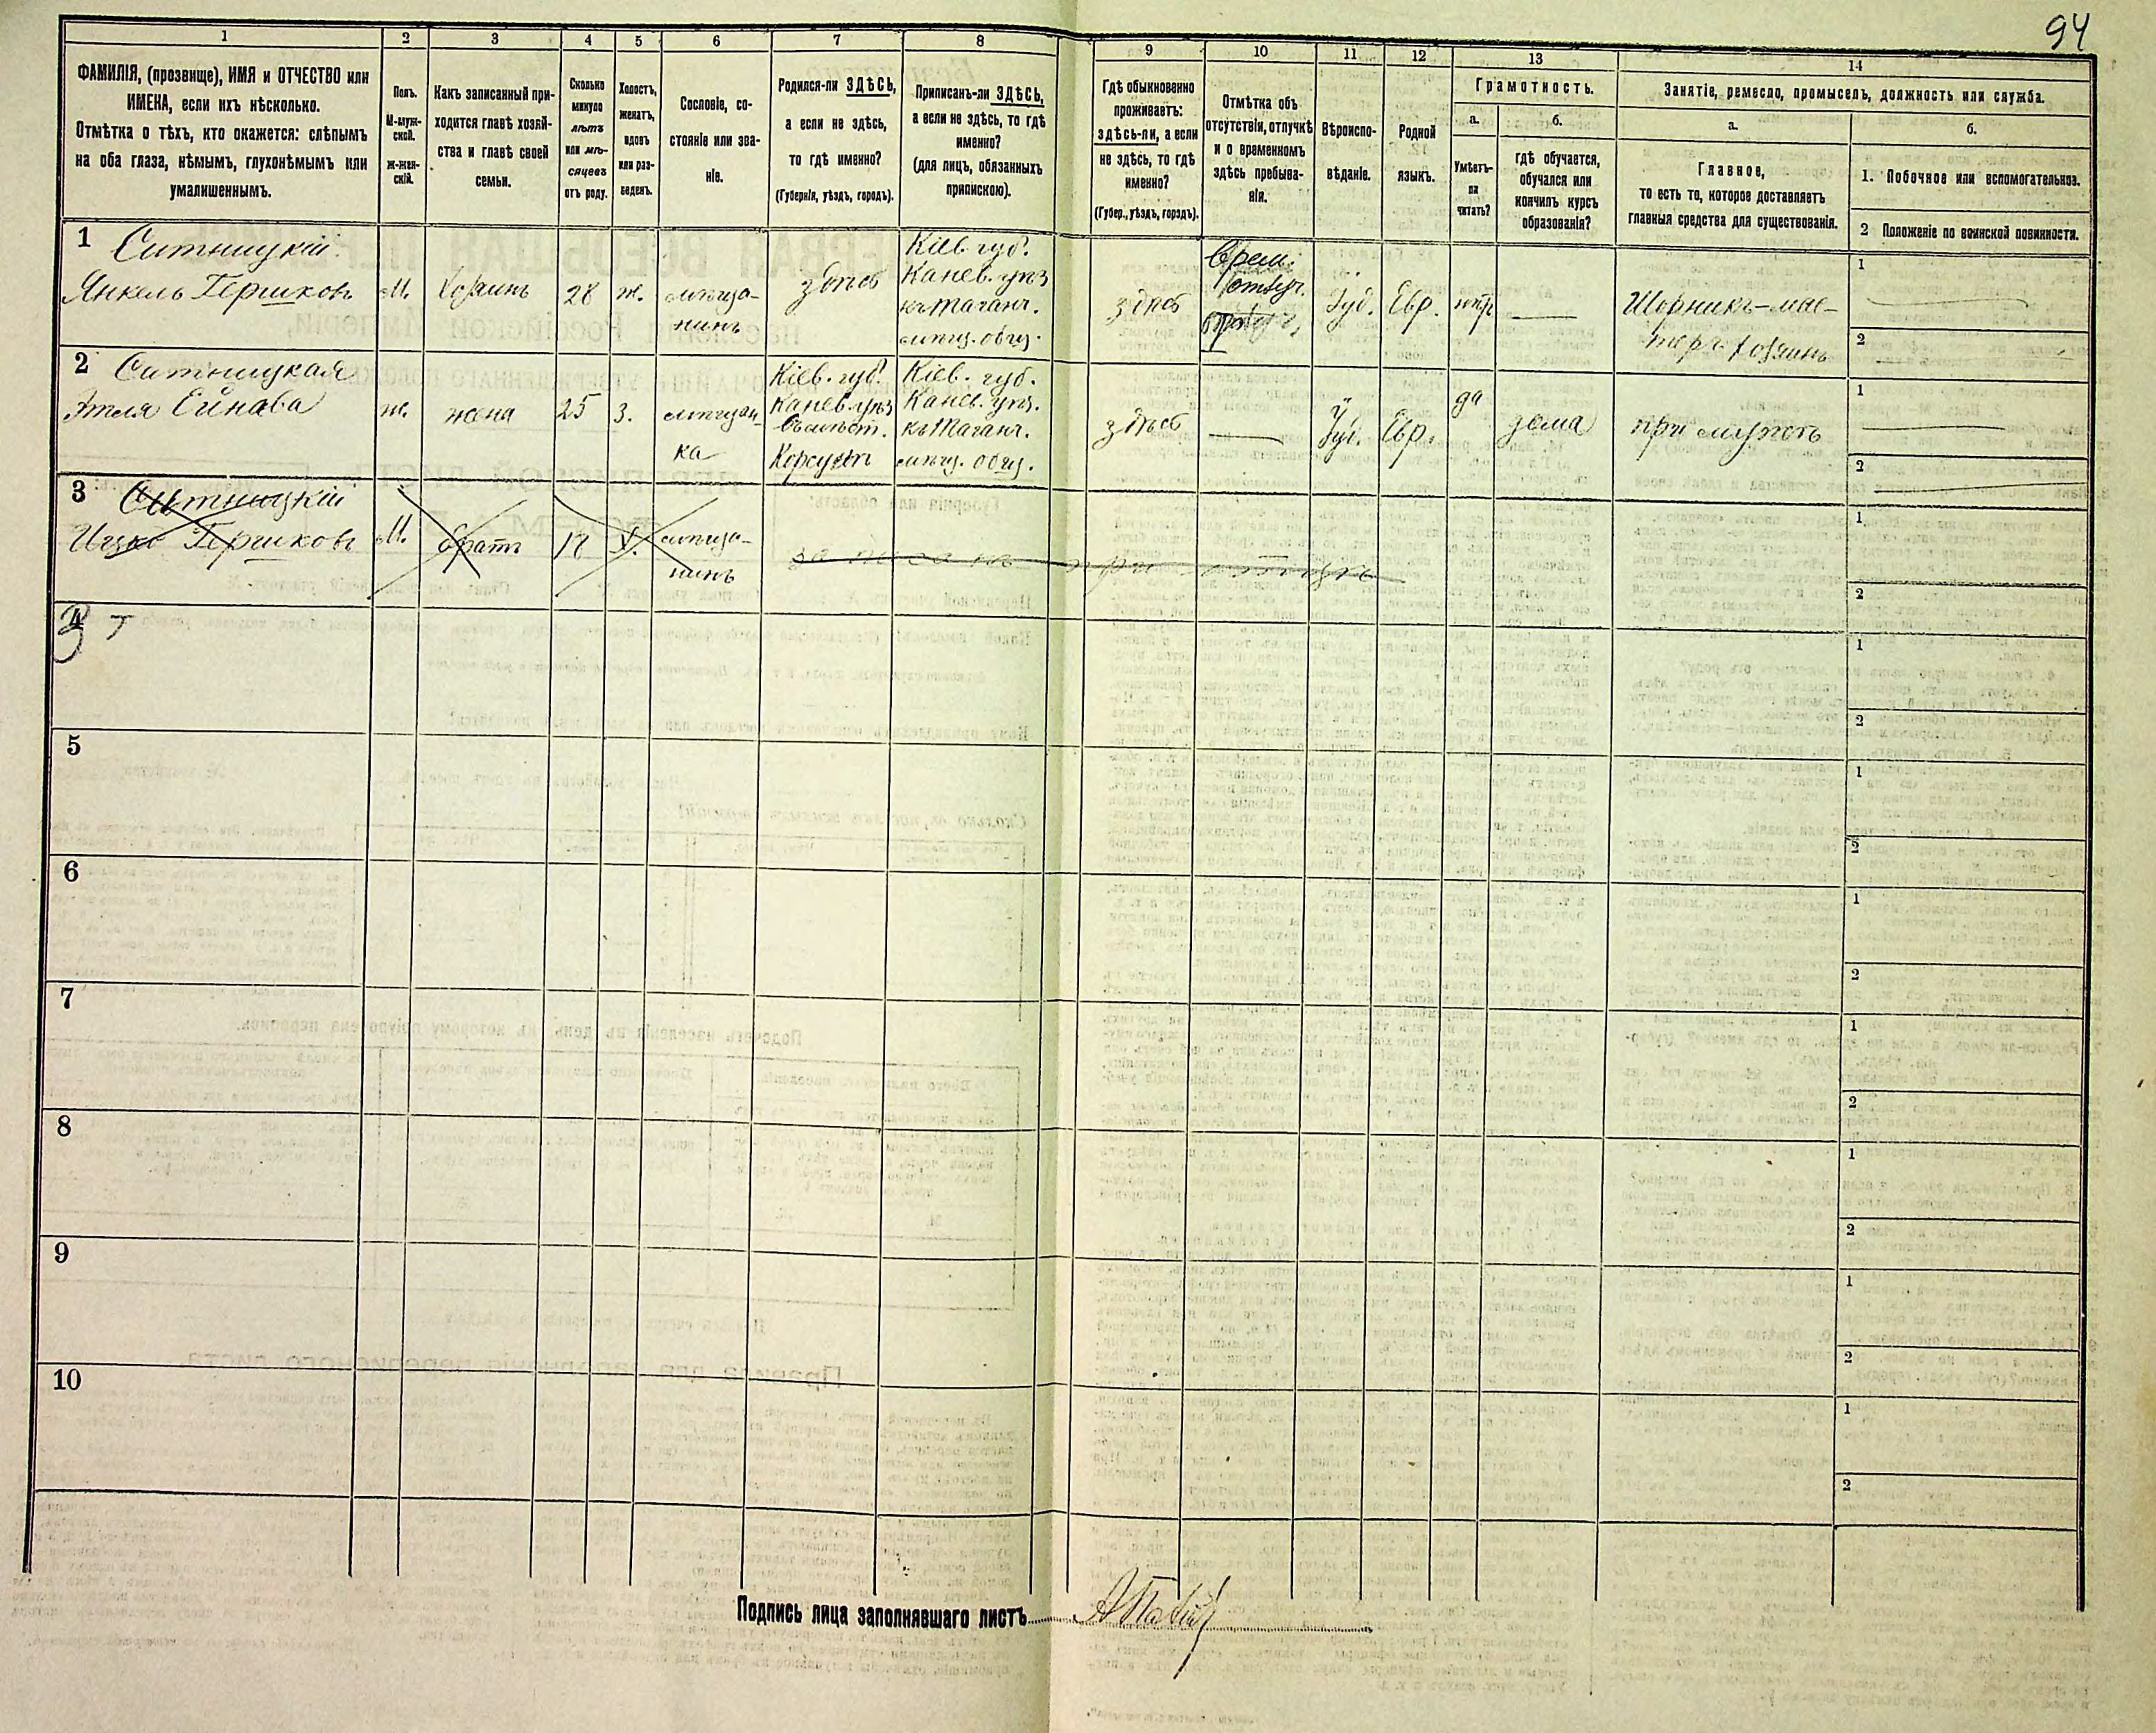 94
1
2
3
4
5
6
7
8
9
10
11
12
13
14
ФАМИЛІЯ, (прозвище), ИМЯ и ОТЧЕСТВО или
ИМЕНА, если ихъ нѣсколько.
Отмѣтка о тѣхъ, кто окажется: слѣпымъ
на оба глаза, нѣмымъ, глухонѣмымъ или
умалишеннымъ.
Полъ.
М-муж-
ской.
Ж-жен-
скій.
Какъ записанный при-
ходится главѣ хозяй-
ства и главѣ своей
семьи.
Сколько
минуло
лѣтъ
или мѣ-
сяцевъ
отъ роду.
Холостъ,
женатъ,
вдовъ
или раз-
веденъ.
Сословіе, со-
стояніе или зва-
ніе.
Родился-ли ЗДѢСЬ,
а если не здѣсь,
то гдѣ именно?
(Губернія, уѣздъ, городъ).
Приписанъ-ли ЗДѢСЬ,
а если не здѣсь, то гдѣ
именно?
(для лицъ, обязанныхъ
припискою).
Гдѣ обыкновенно
проживаетъ:
здѣсь-ли, а если
не здѣсь, то гдѣ
именно?
(Губер., уѣздъ, городъ).
Отмѣтка объ
отсутствіи, отлучкѣ
и о временномъ
здѣсь пребыва-
ніи.
Вѣроиспо-
вѣданіе.
Родной
языкъ.
Грамотность.
а.
Умѣетъ-
ли
читать?
б.
гдѣ обучается,
обучался или
кончилъ курсъ
образованія?
Занятіе, ремесло, промыселъ, должность или служба.
а.
Главное,
то есть то, которое доставляетъ
главныя средства для существованія.
б.
1. Побочное или вспомогательное.
2 Положеніе по воинской повинности.
1 Ситницкій
Янкель Гершковъ
М.
Хозяинъ
28
ж.
мѣща-
нинъ
здѣсь
Кіев. губ.
Канев. уѣз
къ Таганч.
мѣщ. общ.
здѣсь
Врем.
отлуч.
Іуд.
Евр.
нѣтъ
Шорникъ-мас-
теръ хозяинъ
1
2
2 Ситницкая
Этля Ейнава
ж.
жена
25
З.
мѣщан-
ка
Кіев. губ.
Канев. уѣз
въ мѣст.
Корсунѣ
Кіев. губ.
Канев. уѣз.
къ Таганч.
мѣщ. общ.
здѣсь
Іуд.
Евр.
да
дома
при мужѣ
1
2
3 Ситницкій
Ицко Гершковъ
М.
братъ
Х.
мѣща-
нинъ
записанъ при отцѣ
1
2
4
1
2
5
1
2
6
1
2
7
1
2
8
1
2
9
1
2
10
1
2
Подпись лица заполнявшаго листъ